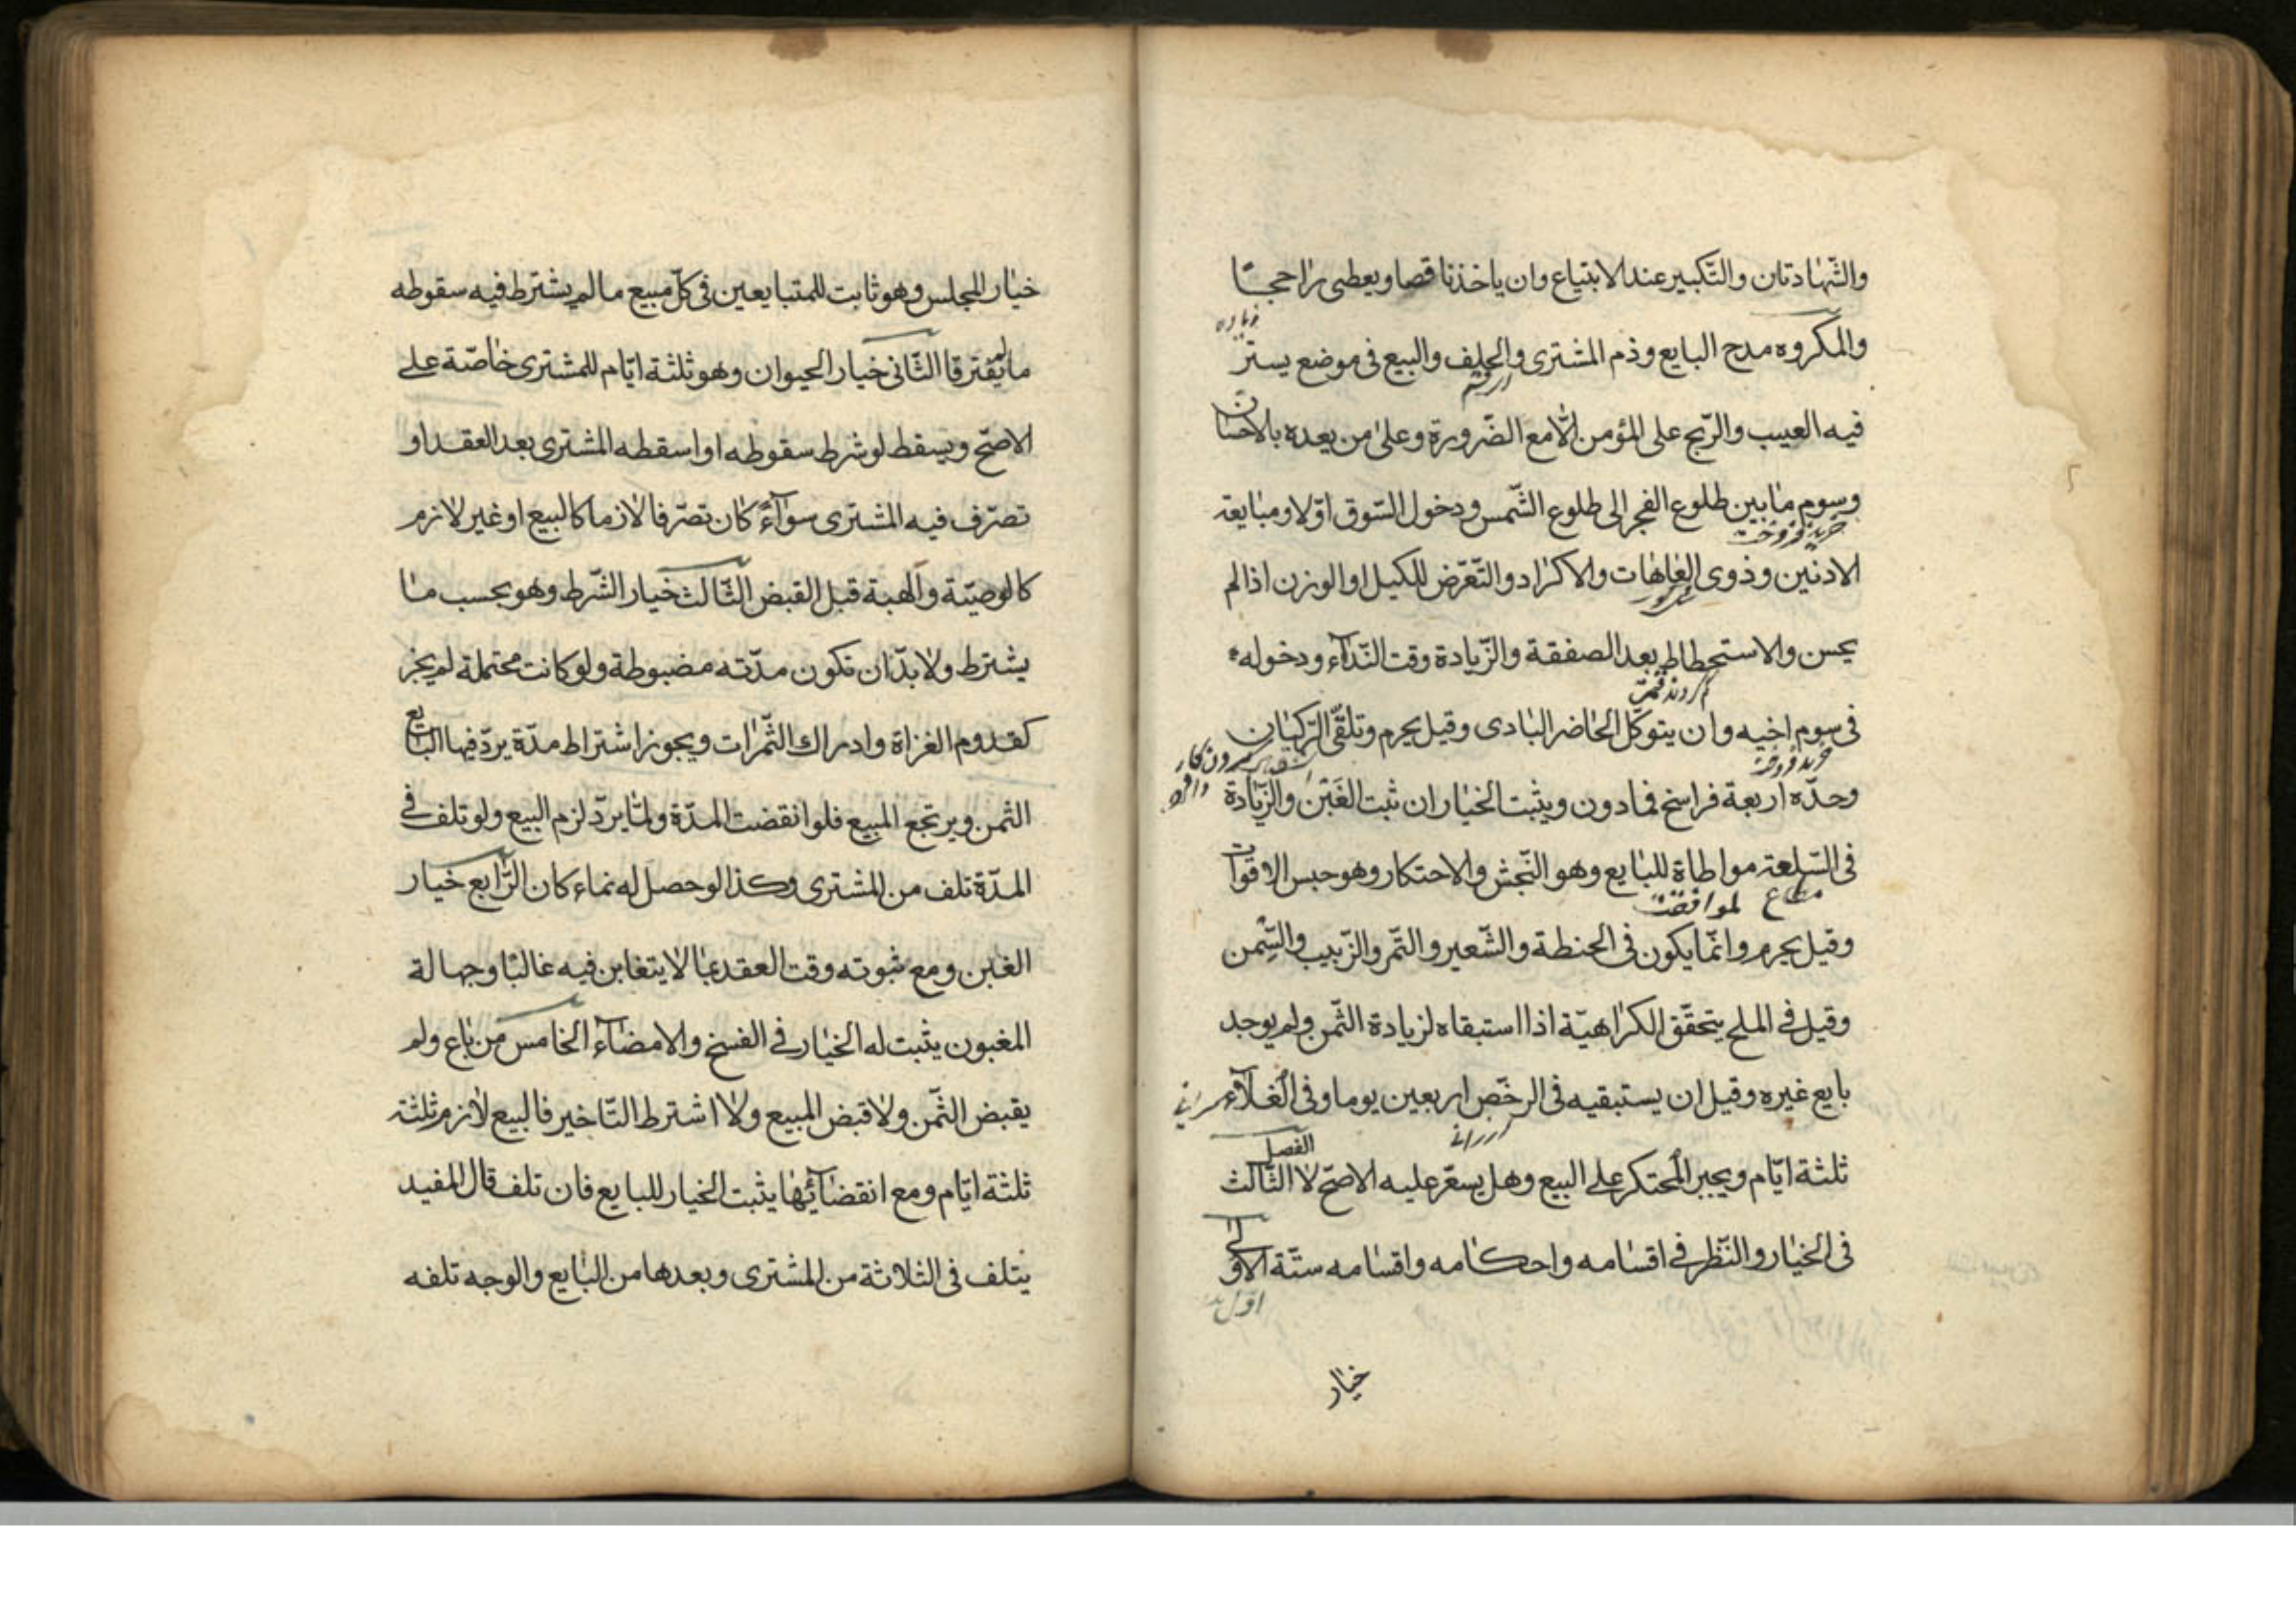 والشّهادتان والتّكبير عند الابتياع وان ياخذ ناقصا ويعطى راجحا
والمكروه مدح البايع وذم المشترى والحلف والبيع فى موضع يستر
فيه العيب والرّبح على المؤمن الّا مع الضّرورة وعلى من يعده بالاحسان
وسوم ما بين طلوع الفجر الى طلوع الشّمس ودخول السّوق اوّلا ومبايعة
خريد فروخت
الادنين وذوى العاهات والاكراد والتّعرّض للكيل او الوزن اذا لم
يحسن والاستحطاط بعد الصفقة والزّيادة وقت النّدآء ودخوله
فى سوم اخيه وان يتوكّل الحاضر البادى وقيل يحرم وتلقّى الرّكبان
وحدّه اربعة فراسخ فما دون ويثبت الخيار ان ثبت الغَبْن والزّيادة
فى السّلعة مواطاة للبايع وهو النّجش والاحتكار وهو حبس الاقوات
متاع
وقيل يحرم وانّما يكون فى الحنطة والشّعير والتّمر والزّبيب والسّمن
وقيل فى الملح يتحقّق الكراهيّة اذا استبقاه لزيادة الثّمن ولم يوجد
بايع غيره وقيل ان يستبقيه فى الرخّص اربعين يوما وفى الغلآء
الفصل
ثلثة ايّام ويجبر المحتكر على البيع وهل يسعّر عليه الاصحّ لا الثّالث
فى الخيار والنّظر فى اقسامه واحكامه واقسامه ستّة الاوّل
خيار
خيار المجلس وهو ثابت للمتبايعين فى كلّ مبيع ما لم يشترط فيه سقوطه
ما لم يفترقا الثّانى خيار الحيوان وهو ثلثة ايّام للمشترى خاصّة على
الاصحّ ويسقط لو شرط سقوطه او اسقطه المشترى بعد العقد او
تصرّف فيه المشترى سوآء كان تصرّفا لازما كالبيع او غير لازم
كالوصيّة والهبة قبل القبض الثّالث خيار الشّرط وهو بحسب ما
يشترط ولا بدّ ان تكون مدّته مضبوطة ولو كانت محتملة لم يجز
كقدوم الغزاة وادراك الثّمرات ويجوز اشتراط مدّة يردّ فيها البايع
الثمن ويرتجع المبيع فلو انقضت المدّة ولمّا يردّ لزم البيع ولو تلف فى
المدّة تلف من المشترى وكذا لو حصل له نماء كان الرّابع خيار
الغبن ومع ثبوته وقت العقد بما لا يتغابن فيه غالبا وجهالة
المغبون يثبت له الخيار فى الفسخ والامضآء الخامس من باع ولم
يقبض الثّمن ولا قبض المبيع ولا اشترط التّاخير فالبيع لازم ثلثة
ثلثة ايّام ومع انقضآئها يثبت الخيار للبايع فان تلف قال المفيد
يتلف فى الثلاثة من المشترى وبعدها من البايع والوجه تلفه